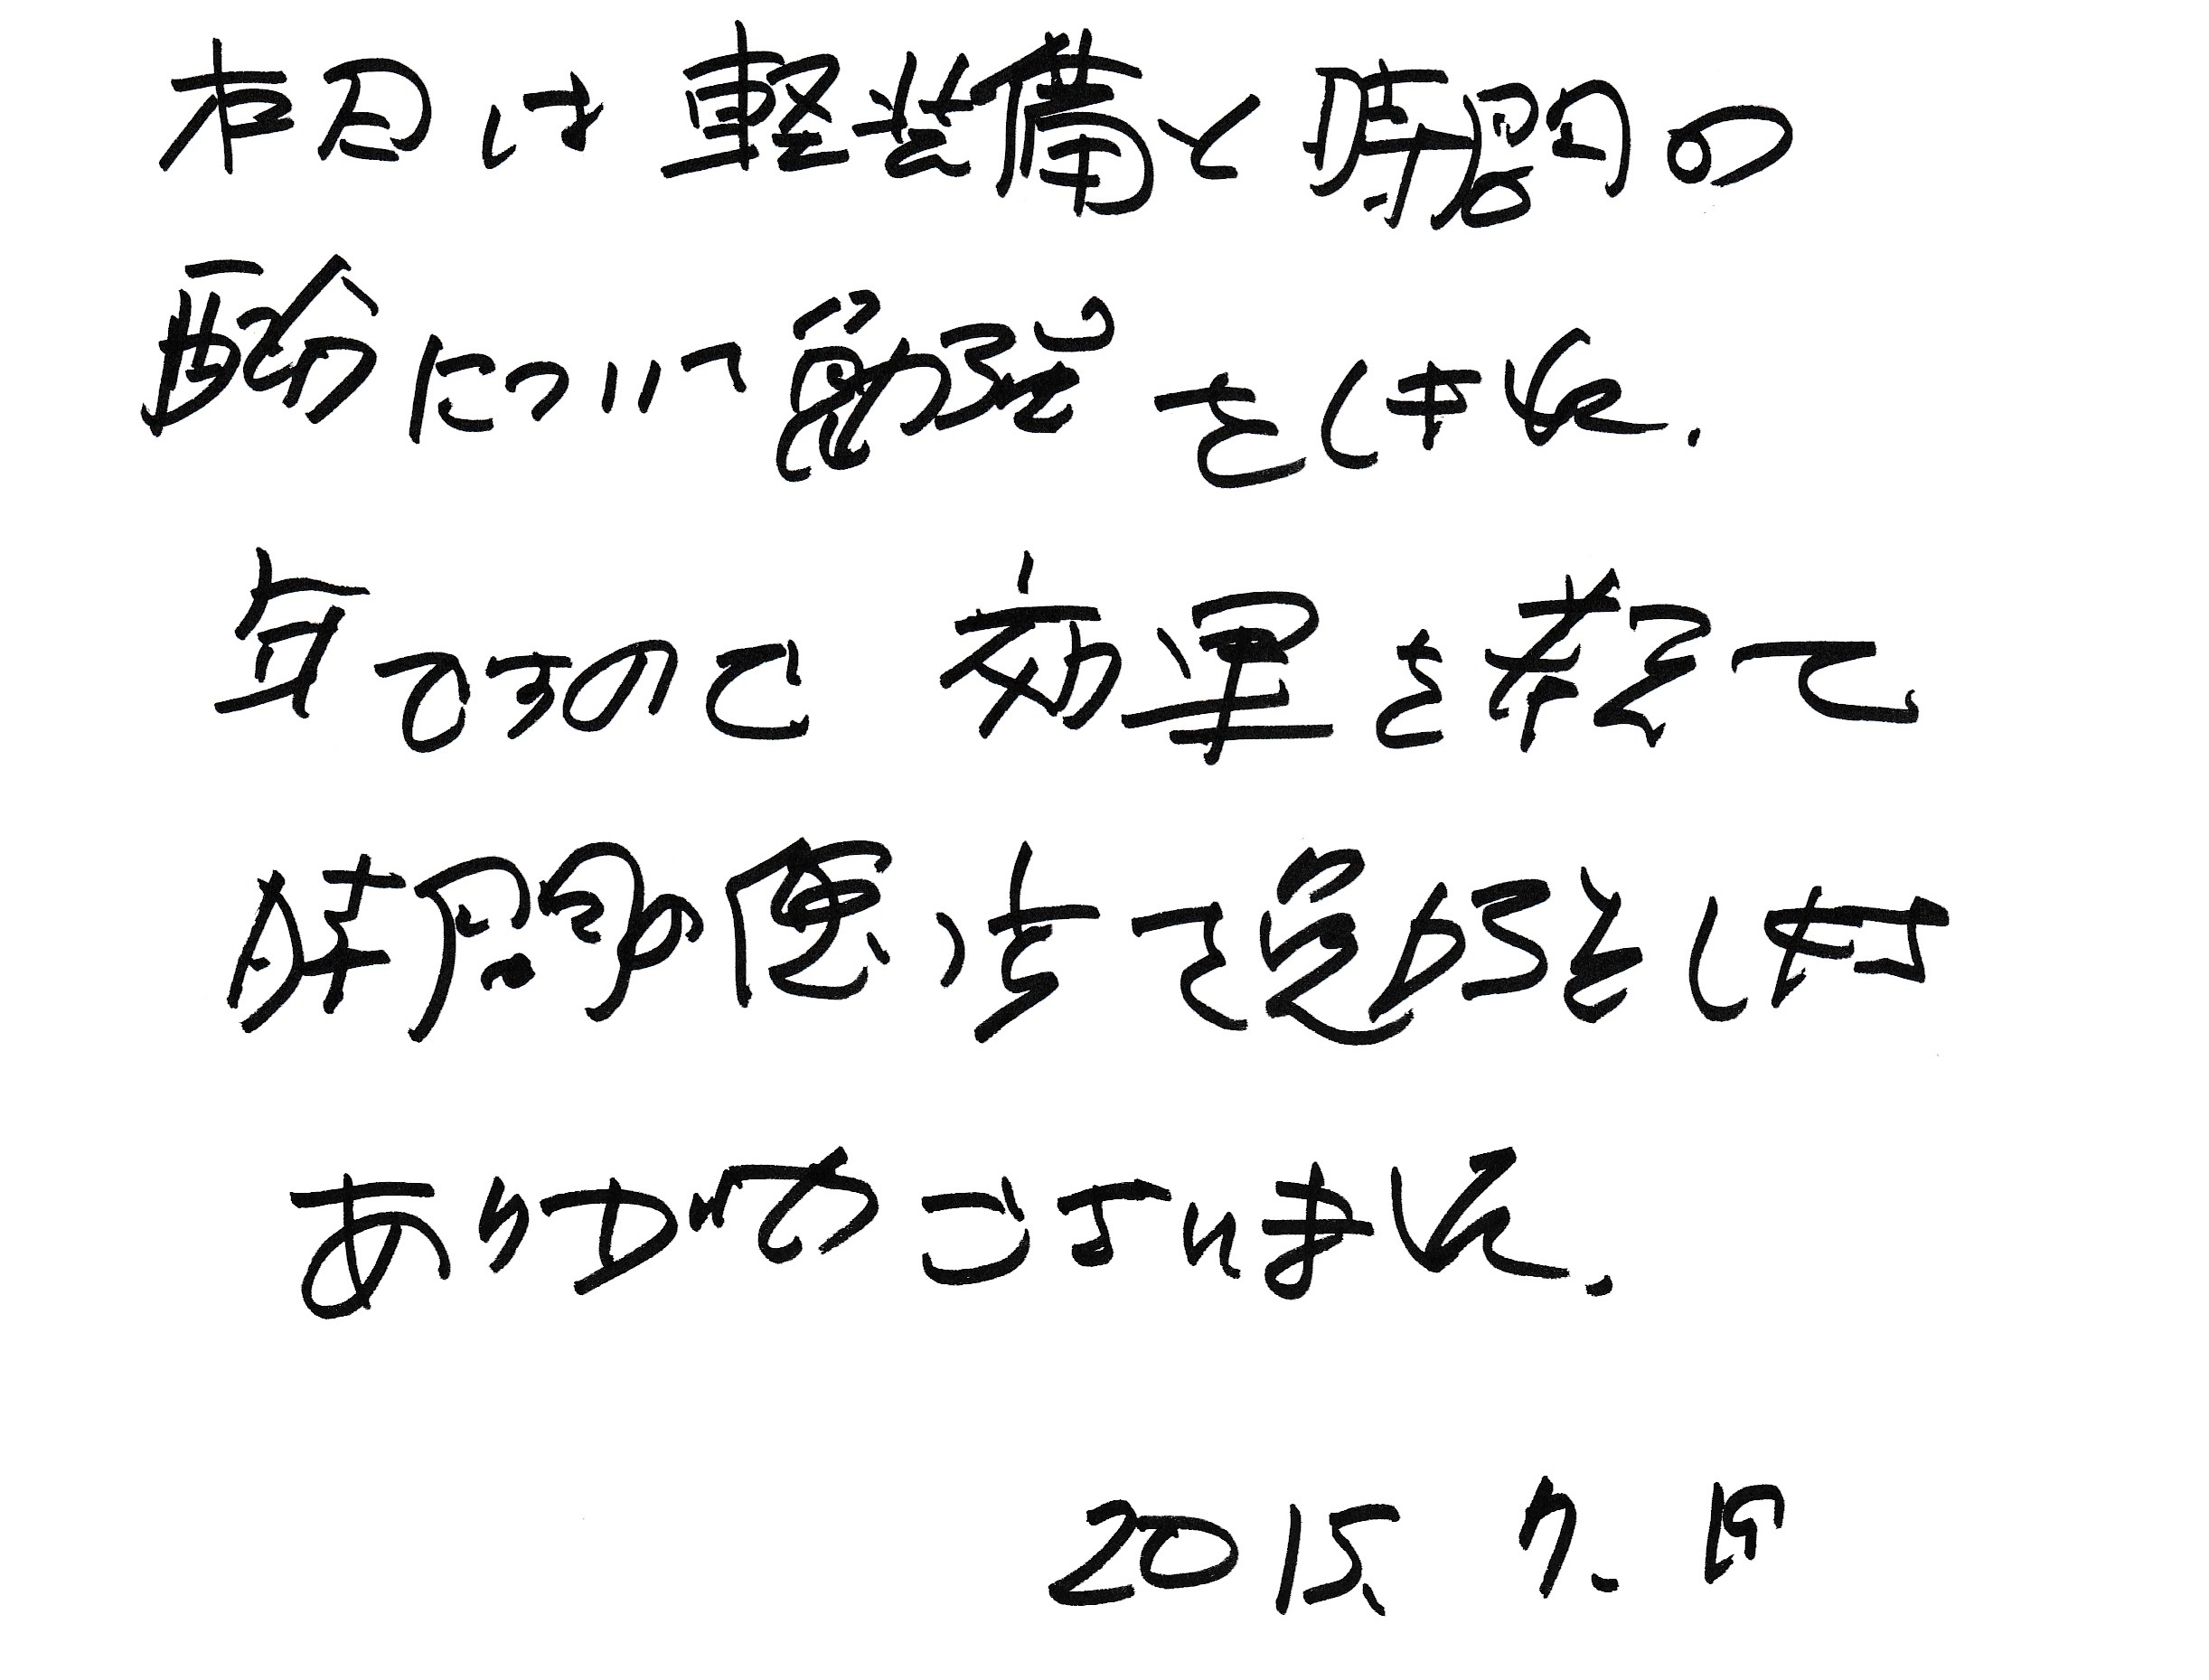 本日は軽装備と時間の
について勉強をしました.
年ですので 効果を考えて
時間の使い方で勉強をします
ありがとうございました.
2015. 7. 19